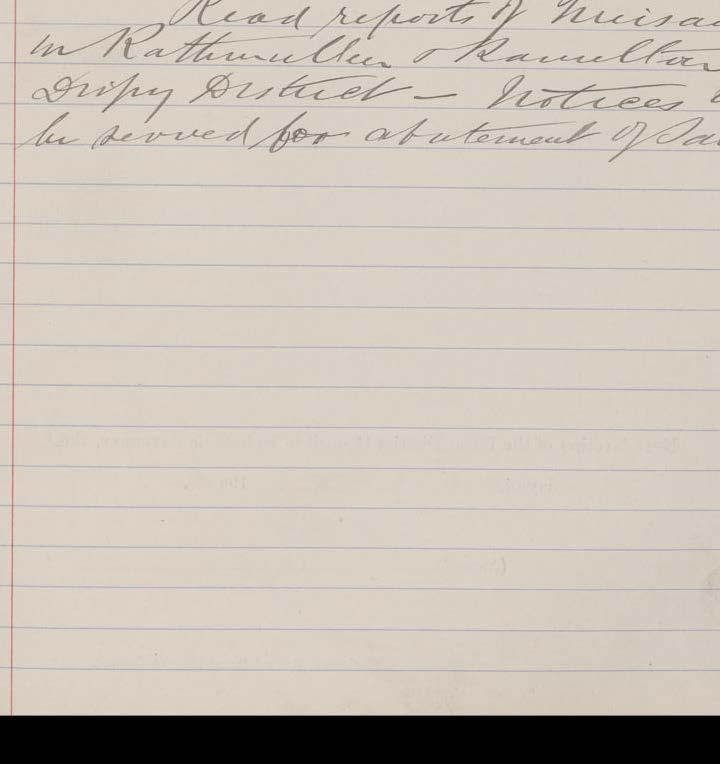 Read reports of Nuisa
in Rathmullen & Ramelton
Dispy District — Notices
be served for abatement of sa